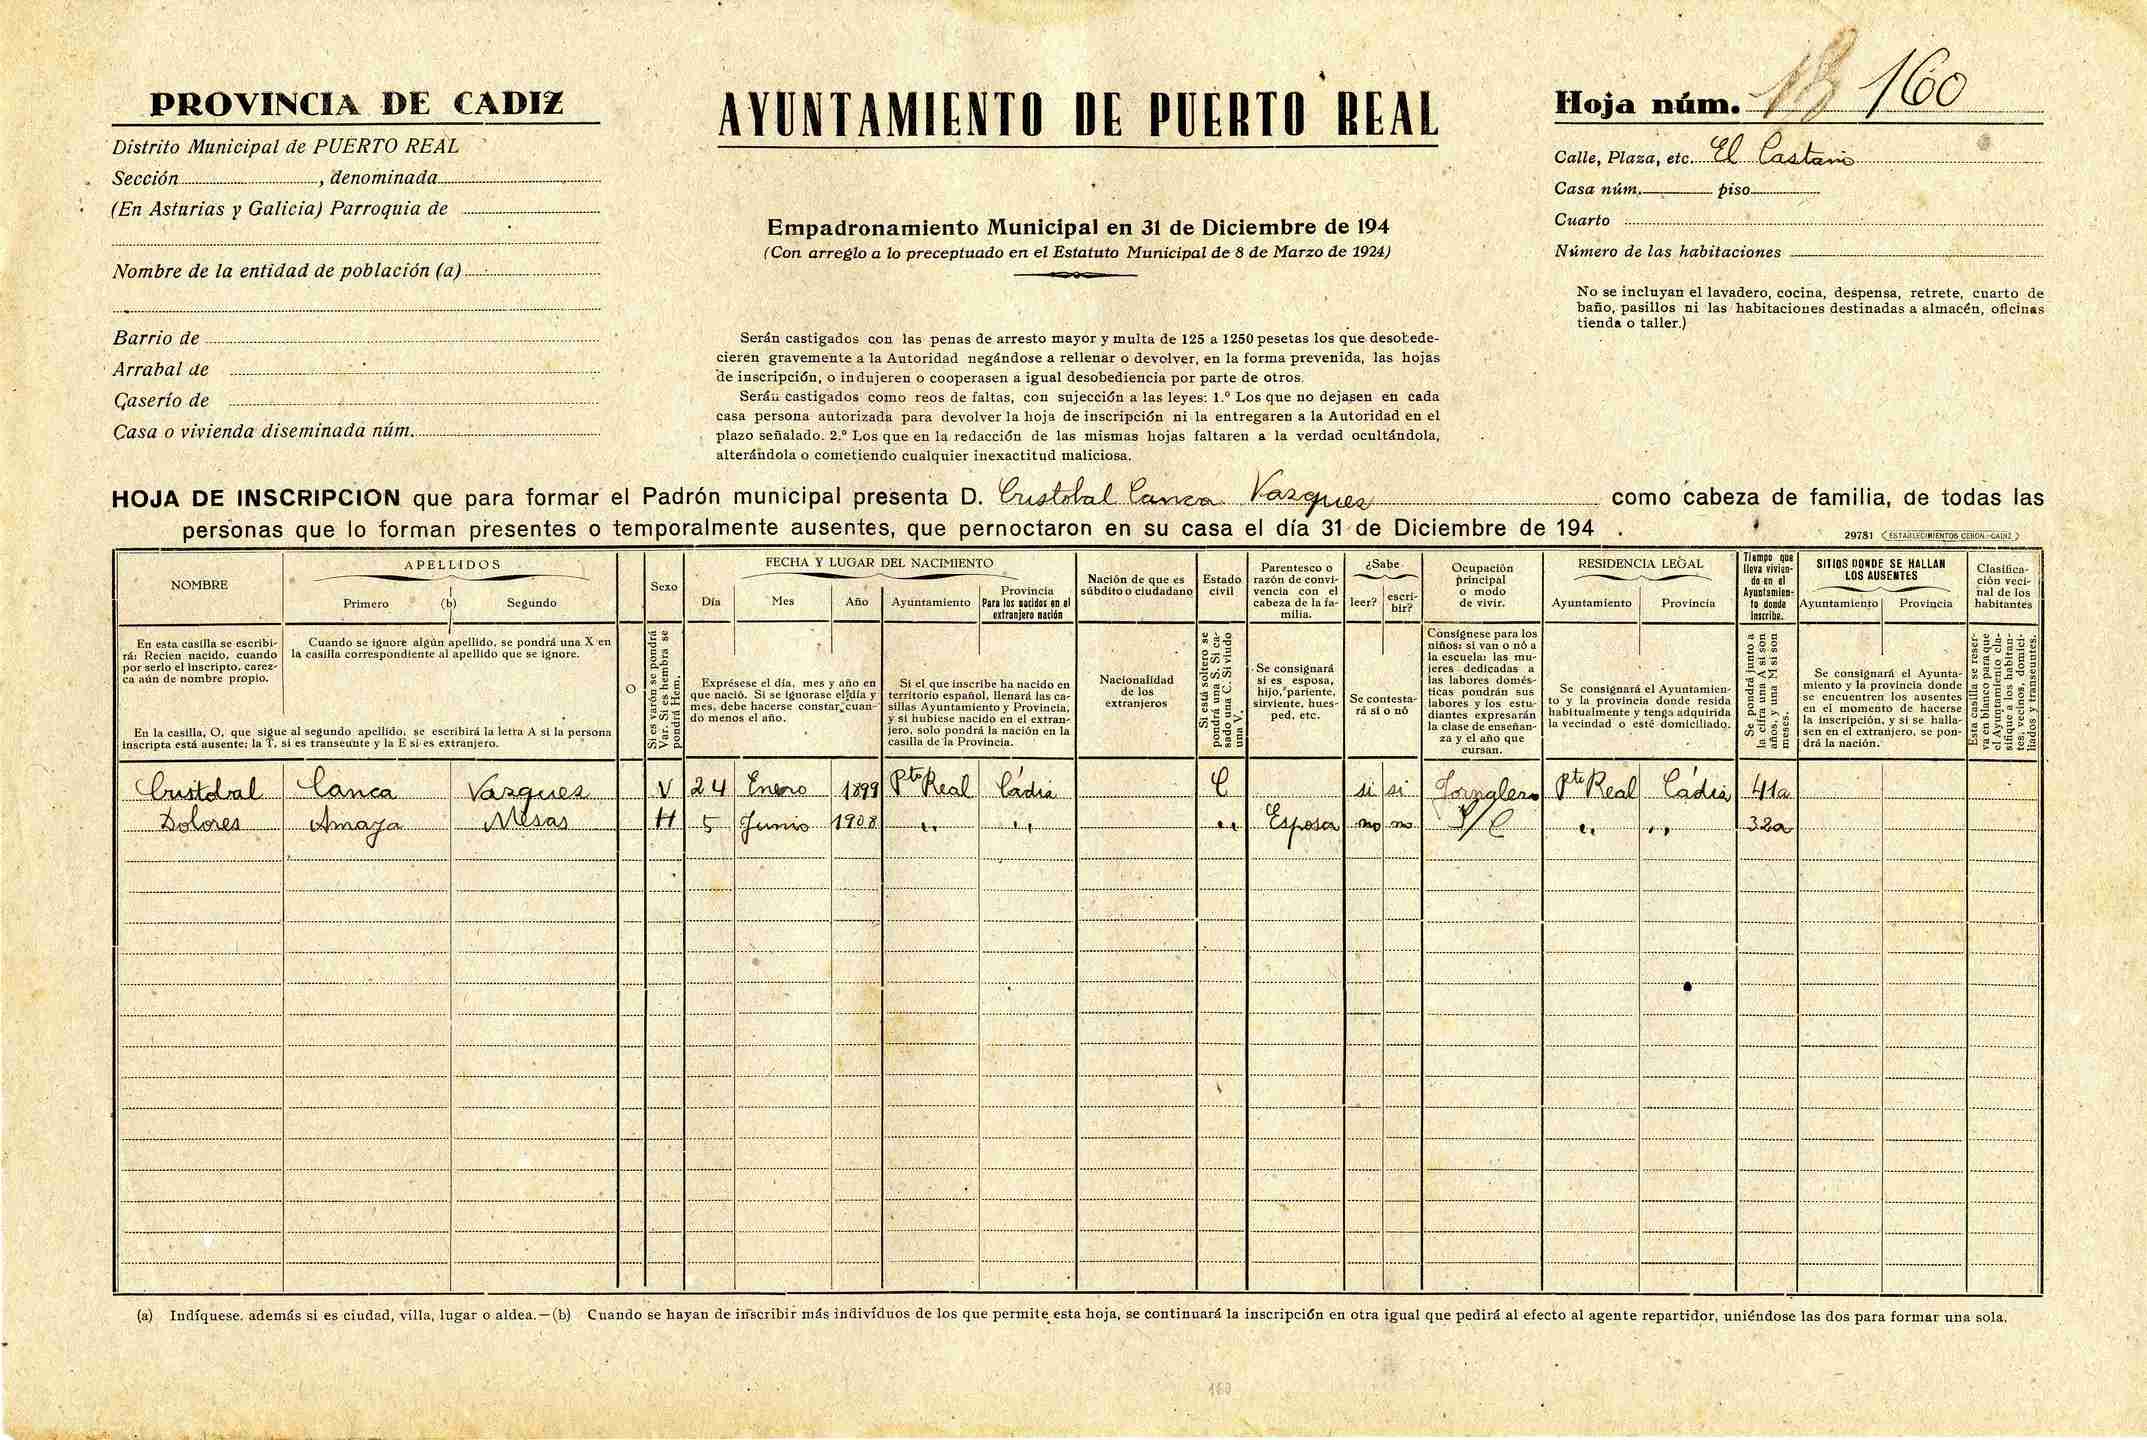 PROVINCIA DE CADIZ
Distrito Municipal de PUERTO REAL
Sección , denominada
(En Asturias y Galicia) Parroquia de
Nombre de la entidad de población (a)
Barrio de
Arrabal de
Caserío de
Casa o vivienda diseminada núm.
AYUNTAMIENTO DE PUERTO REAL
Empadronamiento Municipal en 31 de Diciembre de 194
(Con arreglo a lo preceptuado en el Estatuto Municipal de 8 de Marzo de 1924)
Serán castigados con las penas de arresto mayor y multa de 125 a 1250 pesetas los que desobede-
cieren gravemente a la Autoridad negándose a rellenar o devolver, en la forma prevenida, las hojas
de inscripción, o indujeren o cooperasen a igual desobediencia por parte de otros.
Serán castigados como reos de faltas, con sujección a las leyes: 1.º Los que no dejasen en cada
casa persona autorizada para devolver la hoja de inscripción ni la entregaren a la Autoridad en el
plazo señalado. 2.º Los que en la redacción de las mismas hojas faltaren a la verdad ocultándola,
alterándola o cometiendo cualquier inexactitud maliciosa.
Hoja núm. 160
Calle, Plaza, etc. El Castaño
Casa núm. piso
Cuarto
Número de las habitaciones
No se incluyan el lavadero, cocina, despensa, retrete, cuarto de
baño, pasillos ni las habitaciones destinadas a almacén, oficinas
tienda o taller.)
HOJA DE INSCRIPCION que para formar el Padrón municipal presenta D. Cristobal Canca Vazques como cabeza de familia, de todas las
personas que lo forman presentes o temporalmente ausentes, que pernoctaron en su casa el día 31 de Diciembre de 194 .
29781 (ESTABLECIMIENTOS CERON.-CADIZ)
NOMBRE
APELLIDOS
Primero (b) Segundo
Sexo
FECHA Y LUGAR DEL NACIMIENTO
Día Mes Año Ayuntamiento
Provincia
Para los nacidos en el
extranjero nación
Nación de que es
súbdito o ciudadano
Estado
civil
Parentesco o
razón de convi-
vencia con el
cabeza de la fa-
milia.
¿Sabe
leer? escri-
bir?
Ocupación
principal
o modo
de vivir.
RESIDENCIA LEGAL
Ayuntamiento Provincia
Tiempo que
lleva vivien-
do en el
Ayuntamien-
to donde
inscribe.
SITIOS DONDE SE HALLAN
LOS AUSENTES
Ayuntamiento Provincia
Clasifica-
ción veci-
nal de los
habitantes
En esta casilla se escribi-
rá: Recien nacido, cuando
por serlo el inscripto, carez-
ca aún de nombre propio.
Cuando se ignore algún apellido, se pondrá una X en
la casilla correspondiente al apellido que se ignore.
En la casilla, O, que sigue al segundo apellido, se escribirá la letra A si la persona
inscripta está ausente; la T, si es transeunte y la E si es extranjero.
O
Si es varón se pondrá
Var. Si es hembra se
pondrá Hem.
Exprésese el día, mes y año en
que nació. Si se ignorase el día y
mes, debe hacerse constar cuan-
do menos el año.
Si el que inscribe ha nacido en
territorio español, llenará las ca-
sillas Ayuntamiento y Provincia,
y si hubiese nacido en el extran-
jero, solo pondrá la nación en la
casilla de la Provincia.
Nacionalidad
de los
extranjeros
Si está soltero se
pondrá una S. Si ca-
sado una C. Si viudo
una V.
Se consignará
si es esposa,
hijo, pariente,
sirviente, hues-
ped, etc.
Se contesta-
rá sí o nó
Consígnese para los
niños: si van o nó a
la escuela: las mu-
jeres dedicadas a
las labores domés-
ticas pondrán sus
labores y los estu-
diantes expresarán
la clase de enseñan-
za y el año que
cursan.
Se consignará el Ayuntamien-
to y la provincia donde resida
habitualmente y tenga adquirida
la vecindad o esté domiciliado.
Se pondrá junto a
la cifra una A si son
años, y una M si son
meses.
Se consignará el Ayunta-
miento y la provincia donde
se encuentren los ausentes
en el momento de hacerse
la inscripción, y si se halla-
sen en el extranjero, se pon-
drá la nación.
Esta casilla se reser-
va en blanco para que
el Ayuntamiento cla-
sifique a los habitan-
tes, vecinos, domici-
liados y transeuntes.
Cristobal Canca Vazques V 24 Enero 1899 Pto Real Cádiz C si si Jornalero Pto Real Cádiz 41a
Dolores Amaya Mesas H 5 Junio 1908 " " " Esposa no no S/C " " 32a
(a) Indíquese. además si es ciudad, villa, lugar o aldea.—(b) Cuando se hayan de inscribir más indivíduos de los que permite esta hoja, se continuará la inscripción en otra igual que pedirá al efecto al agente repartidor, uniéndose las dos para formar una sola.
160